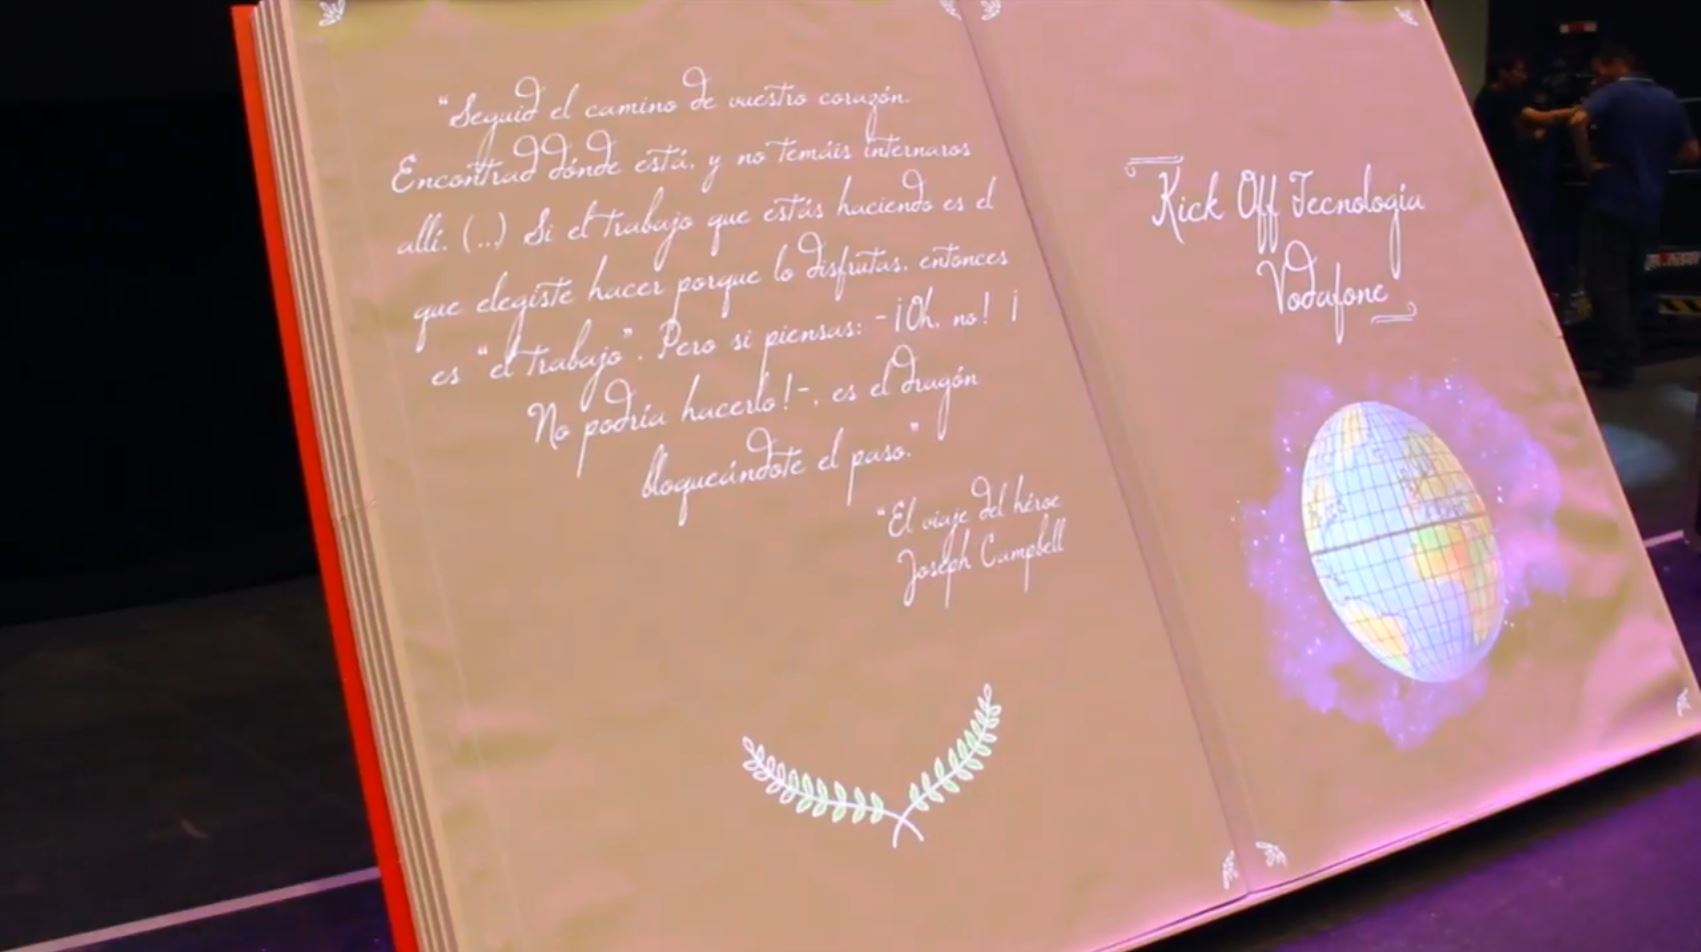 "Seguid el camino de vuestro corazón.
Encontrad dónde está, y no temáis internaros
allí. (...) Si el trabajo que estás haciendo es el
que elegiste hacer porque lo disfrutas, entonces
es "el trabajo". Pero si piensas: -¡Oh, no! ¡
No podría hacerlo!-, es el dragón
bloqueándote el paso."
"El viaje del héroe
Joseph Campbell
Kick Off Tecnología
Vodafone